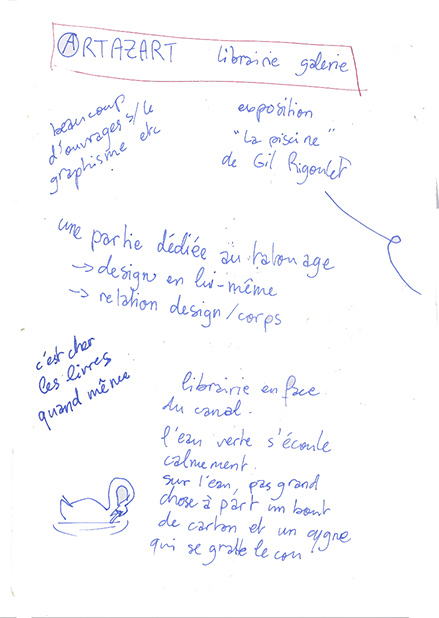 ARTAZART librairie galerie
beaucoup
d'ouvrages s/ le
graphisme etc
exposition
"La piscine"
de Gil Rigoulet
une partie dédiée au tatouage
→ design en lui-même
→ relation design/corps
c'est cher
les livres
quand même
librairie en face
du canal.
l'eau verte s'écoule
calmement.
sur l'eau, pas grand
chose à part un bout
de carton et un cygne
qui se gratte le cou